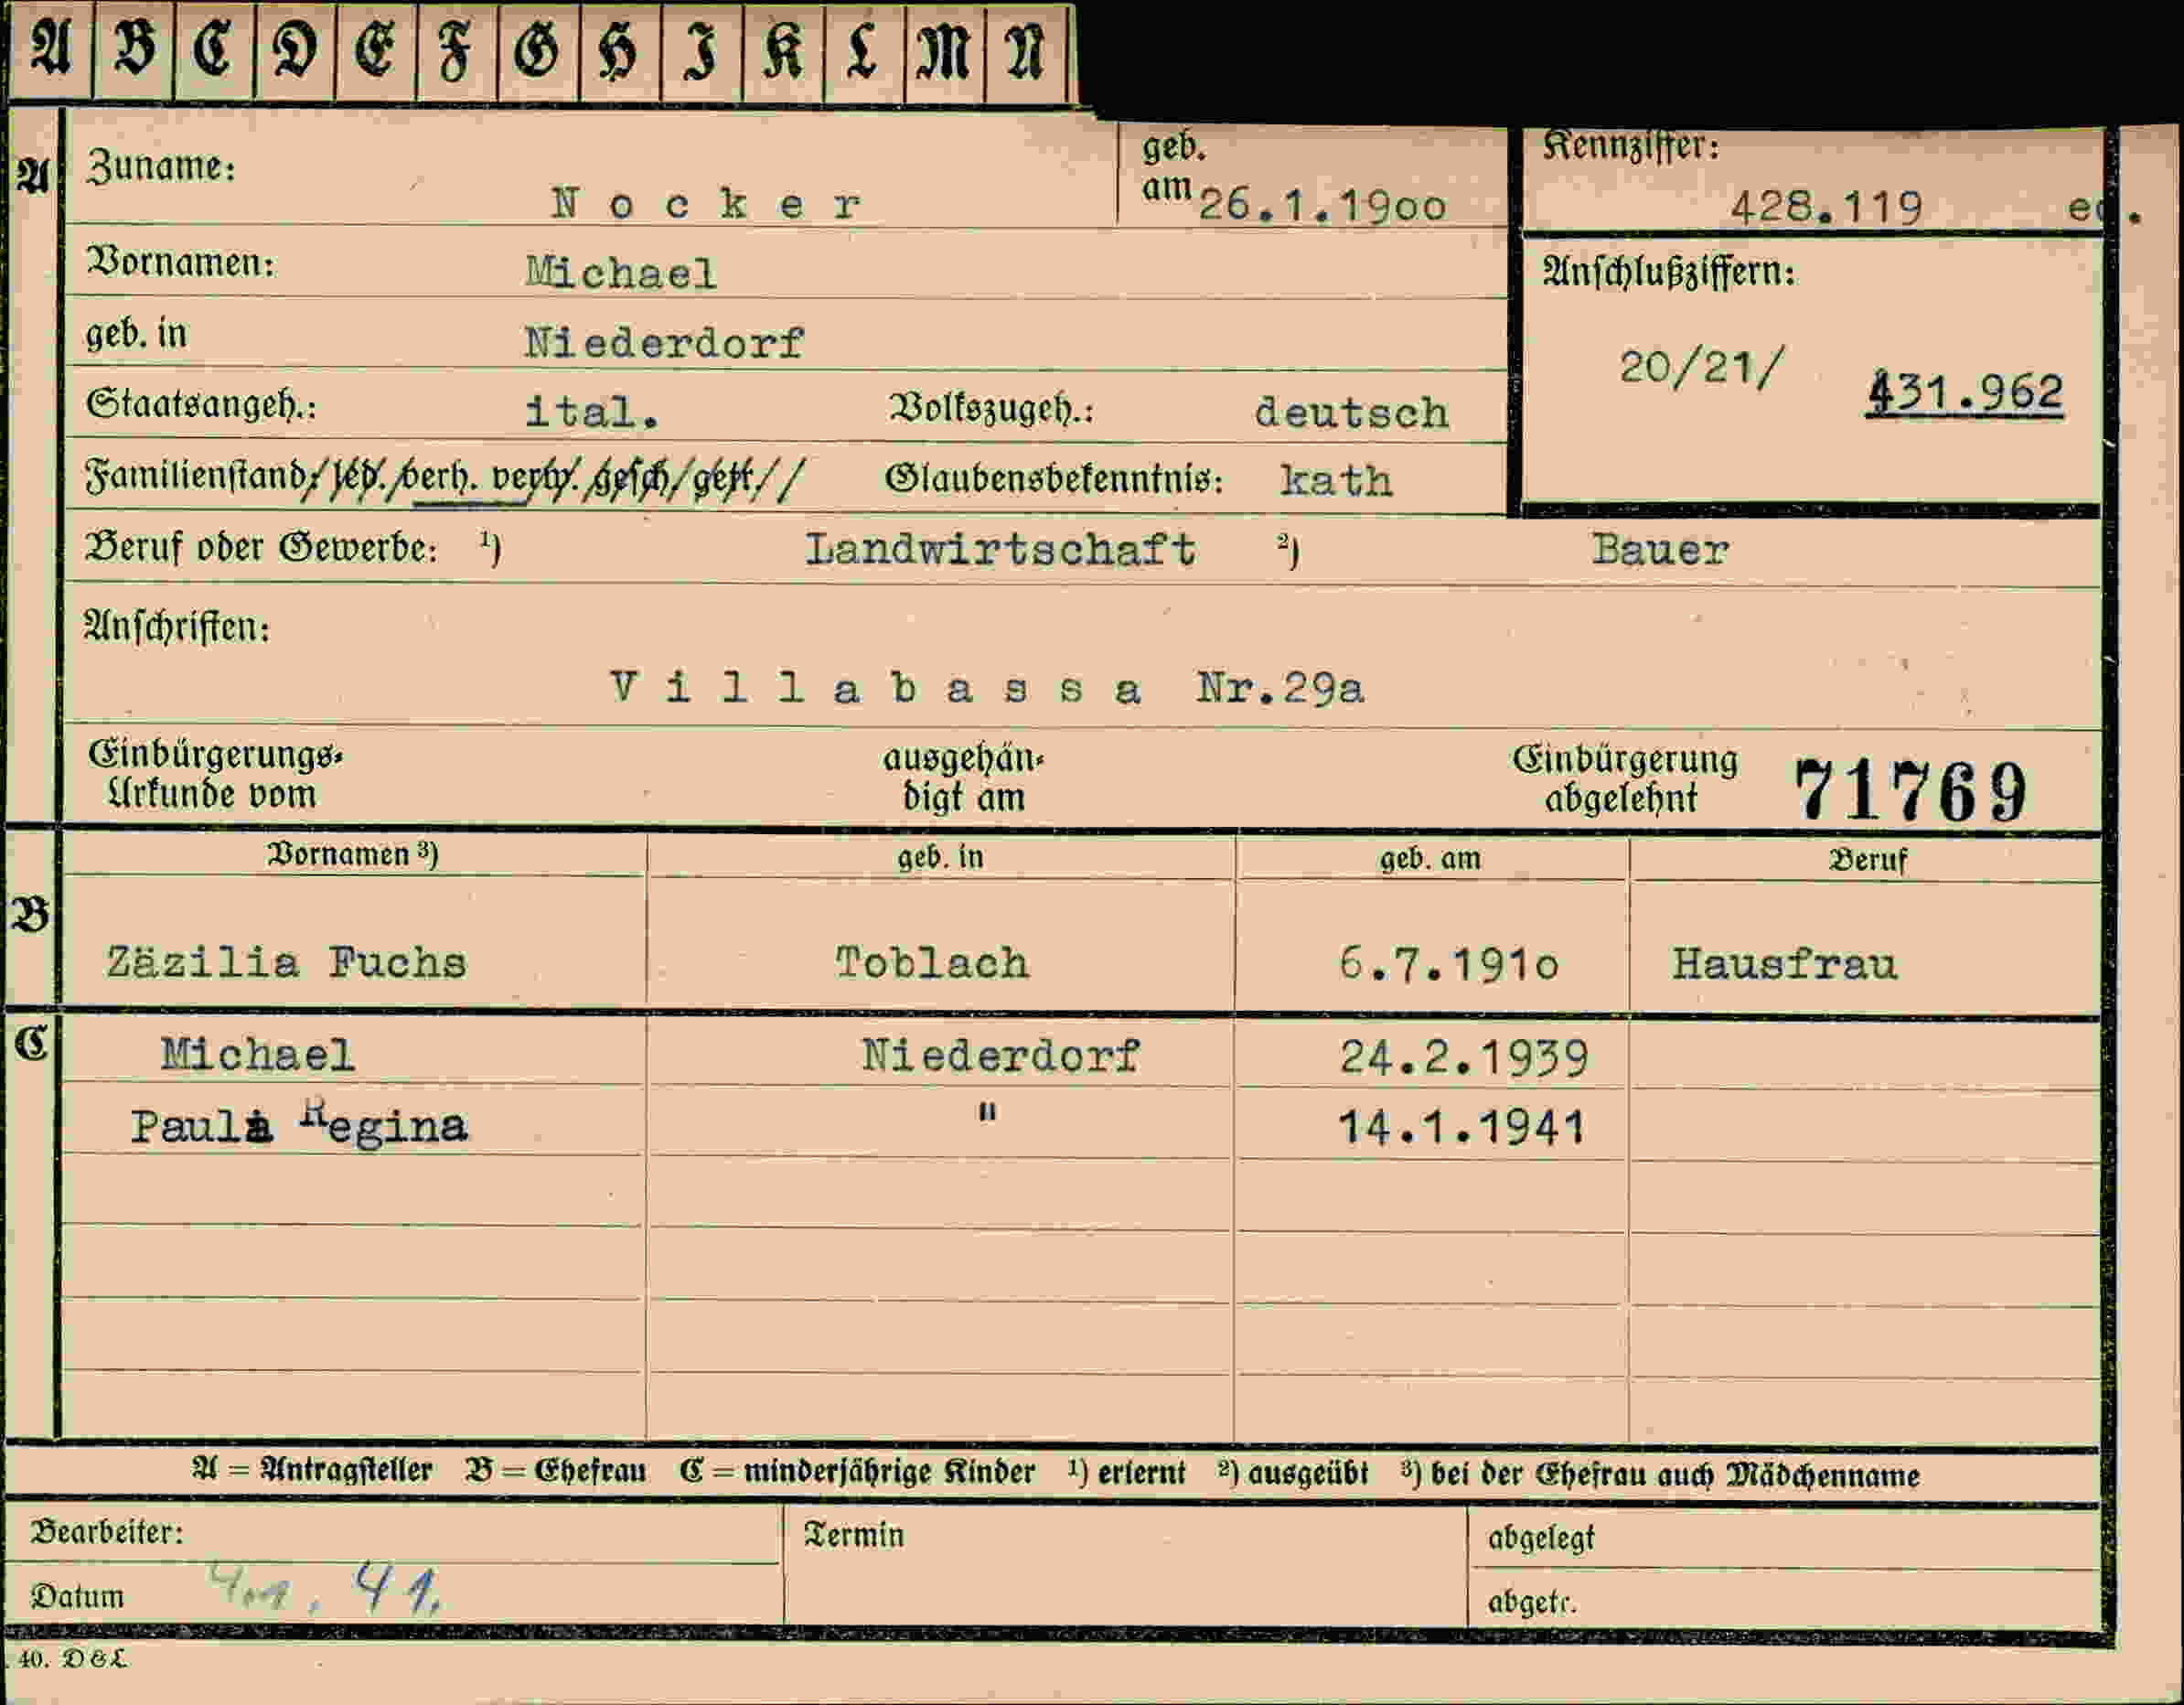 A B C D E F G H I K L M N
A Zuname: Nocker geb. am 26.1.19oo Kennziffer: 428.119
Vornamen: Michael Anschlußziffern:
geb. in Niederdorf 20/21/ 431.962
Staatsangeh.: ital. Volkszugeh.: deutsch
Familienstand: led. verh. verw. gesch. getr. Glaubensbekenntnis: kath
Beruf oder Gewerbe: ¹) Landwirtschaft ²) Bauer
Anschriften:
Villabassa Nr.29a
Einbürgerungs- ausgehän- Einbürgerung 71769
Urkunde vom digt am abgelehnt
Vornamen ³) geb. in geb. am Beruf
B Zäzilia Fuchs Toblach 6.7.191o Hausfrau
C Michael Niederdorf 24.2.1939
Paula Regina " 14.1.1941
A = Antragsteller B = Ehefrau C = minderjährige Kinder ¹) erlernt ²) ausgeübt ³) bei der Ehefrau auch Mädchenname
Bearbeiter: Termin abgelegt
Datum 41. abgetr.
40. D&L